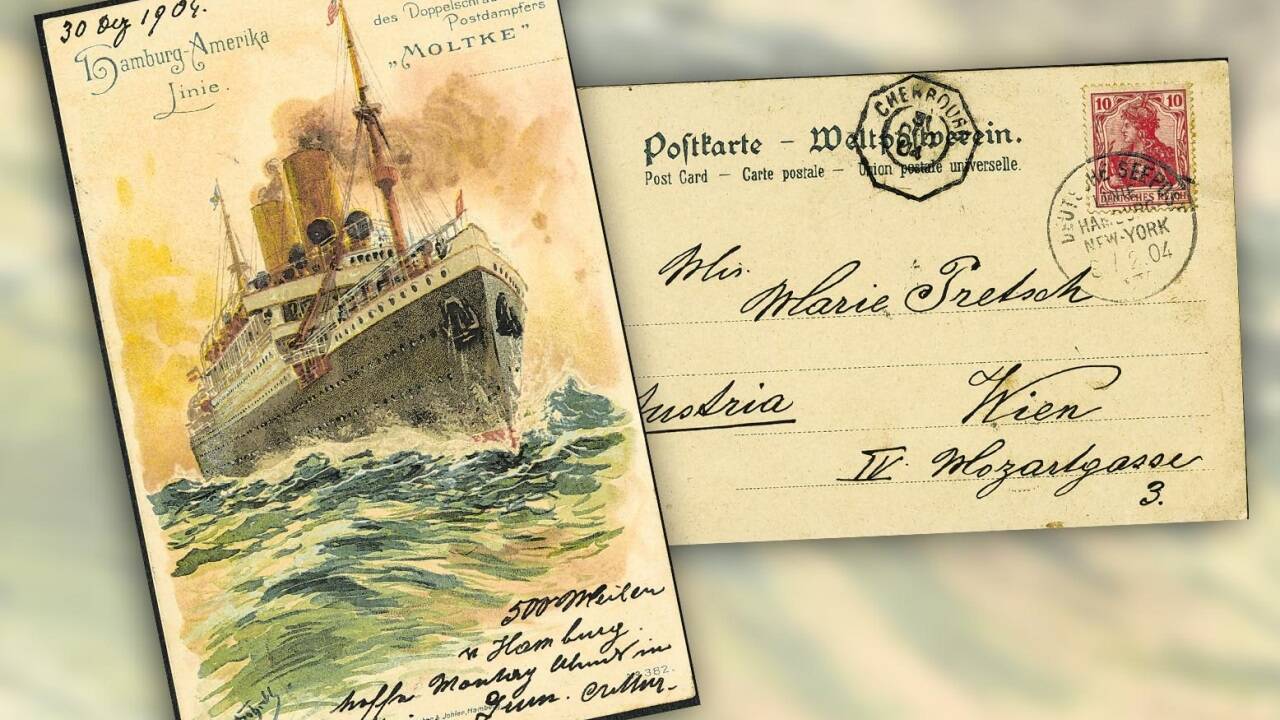 30 Dez 1904.
Hamburg-Amerika
Linie.
des Doppelschrau
Postdampfers
"MOLTKE"
500 Meilen
v Hamburg.
hoffe Montag Abend in
382.
& Johler, Hamb
Postkarte – Weltpostverein.
Post Card – Carte postale – Union postale universelle.
CHERBOURG
10 10
DEUTSCHES REICH
DEUTSCHE SEEPOST
HAMBURG
NEW-YORK
04
Marie Pretsch
Austria
Wien
IV. Mozartgasse
3.